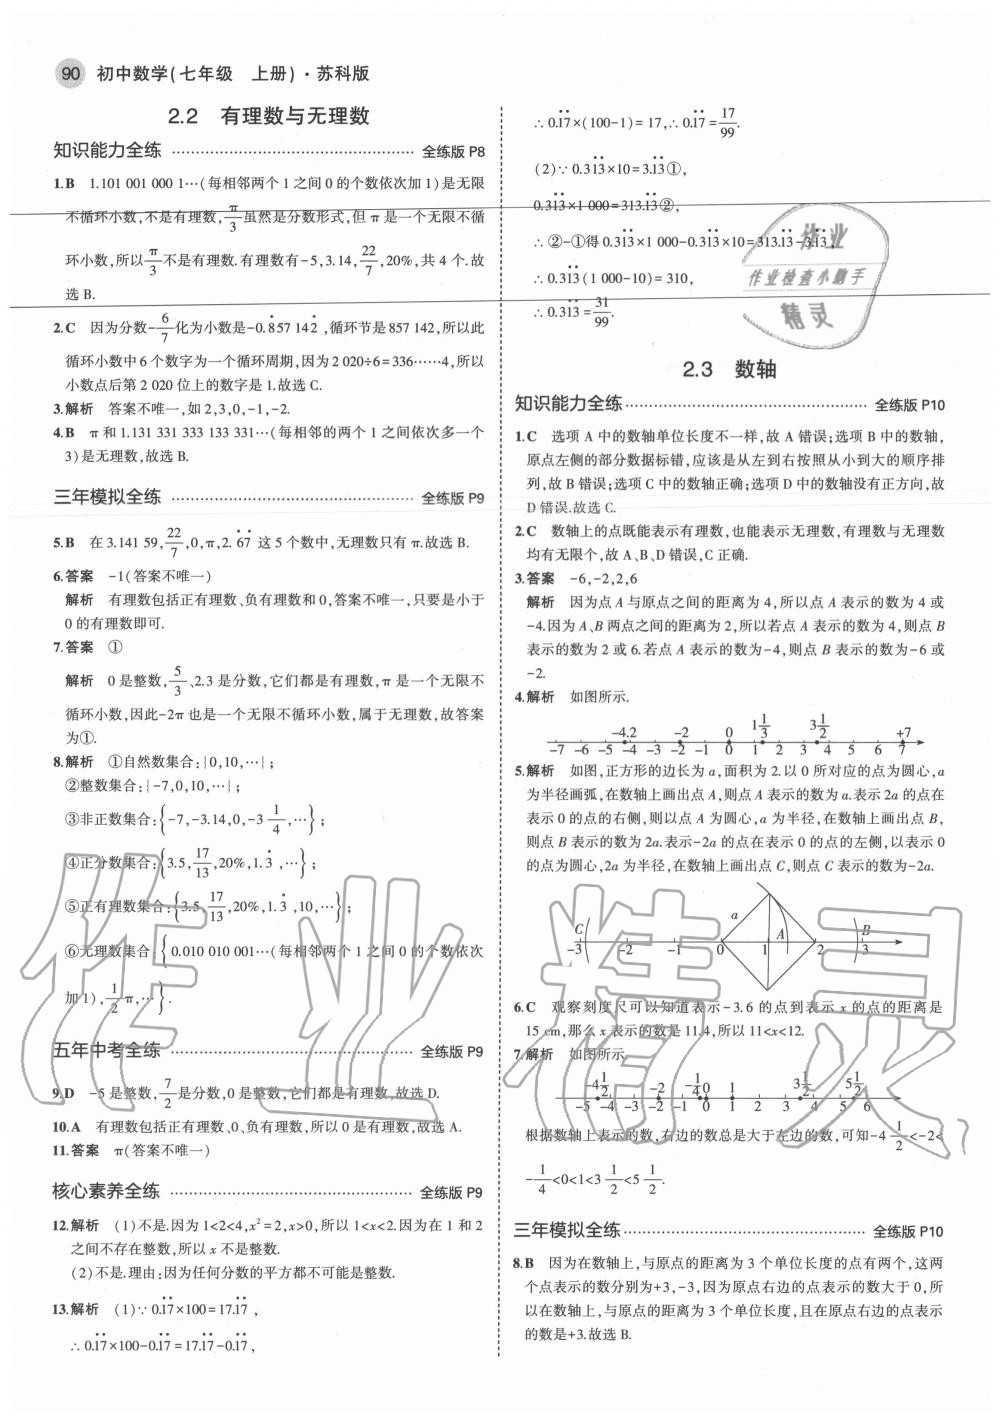 90 初中数学(七年级 上册)·苏科版
2.2 有理数与无理数
知识能力全练 ………… 全练版 P8
1.B 1.101 001 000 1…(每相邻两个 1 之间 0 的个数依次加 1)是无限
不循环小数,不是有理数,π/3虽然是分数形式,但 π 是一个无限不循
环小数,所以π/3不是有理数.有理数有-5,3.14,22/7,20%,共 4 个.故
选 B.
2.C 因为分数-6/7化为小数是-0.8̇57 142̇,循环节是 857 142,所以此
循环小数中 6 个数字为一个循环周期,因为 2 020÷6=336……4,所以
小数点后第 2 020 位上的数字是 1.故选 C.
3.解析 答案不唯一,如 2,3,0,-1,-2.
4.B π 和 1.131 331 333 133 331…(每相邻的两个 1 之间依次多一个
3)是无理数,故选 B.
三年模拟全练 ………… 全练版 P9
5.B 在 3.141 59,22/7,0,π,2.6̇7̇ 这 5 个数中,无理数只有 π.故选 B.
6.答案 -1(答案不唯一)
解析 有理数包括正有理数、负有理数和 0,答案不唯一,只要是小于
0 的有理数即可.
7.答案 ①
解析 0 是整数,5/3、2.3 是分数,它们都是有理数,π 是一个无限不
循环小数,因此-2π 也是一个无限不循环小数,属于无理数,故答案
为①.
8.解析 ①自然数集合:{0,10,…};
②整数集合:{-7,0,10,…};
③非正数集合:{-7,-3.14,0,-3 1/4,…};
④正分数集合:{3.5,17/13,20%,1.3̇,…};
⑤正有理数集合:{3.5,17/13,20%,1.3̇,10,…};
⑥无理数集合:{0.010 010 001…(每相邻两个 1 之间 0 的个数依次
加 1),1/2π,…}.
五年中考全练 ………… 全练版 P9
9.D -5 是整数,7/2是分数,0 是整数,它们都是有理数.故选 D.
10.A 有理数包括正有理数、0、负有理数,所以 0 是有理数,故选 A.
11.答案 π(答案不唯一)
核心素养全练 ………… 全练版 P9
12.解析 (1)不是.因为 1<2<4,x²=2,x>0,所以 1<x<2.因为在 1 和 2
之间不存在整数,所以 x 不是整数.
(2)不是.理由:因为任何分数的平方都不可能是整数.
13.解析 (1)∵ 0.1̇7̇×100=17.1̇7̇,
∴ 0.1̇7̇×100-0.1̇7̇=17.1̇7̇-0.1̇7̇,
∴ 0.1̇7̇×(100-1)=17,∴ 0.1̇7̇=17/99.
(2)∵ 0.31̇3̇×10=3.1̇3̇①,
0.31̇3̇×1 000=313.1̇3̇②,
∴ ②-①得 0.31̇3̇×1 000-0.31̇3̇×10=313.1̇3̇-3.1̇3̇,
∴ 0.31̇3̇(1 000-10)=310,
∴ 0.31̇3̇=31/99.
作业
作业检查小助手
精灵
2.3 数轴
知识能力全练 ………… 全练版 P10
1.C 选项 A 中的数轴单位长度不一样,故 A 错误;选项 B 中的数轴,
原点左侧的部分数据标错,应该是从左到右按照从小到大的顺序排
列,故 B 错误;选项 C 中的数轴正确;选项 D 中的数轴没有正方向,故
D 错误.故选 C.
2.C 数轴上的点既能表示有理数,也能表示无理数,有理数与无理数
均有无限个,故 A、B、D 错误,C 正确.
3.答案 -6,-2,2,6
解析 因为点 A 与原点之间的距离为 4,所以点 A 表示的数为 4 或
-4.因为 A、B 两点之间的距离为 2,所以若点 A 表示的数为 4,则点 B
表示的数为 2 或 6.若点 A 表示的数为-4,则点 B 表示的数为-6 或
-2.
4.解析 如图所示.
-4.2 -2 0 1 1/3 3 1/2 +7
-7 -6 -5 -4 -3 -2 -1 0 1 2 3 4 5 6 7
5.解析 如图,正方形的边长为 a,面积为 2.以 0 所对应的点为圆心,a
为半径画弧,在数轴上画出点 A,则点 A 表示的数为 a.表示 2a 的点在
表示 0 的点的右侧,则以点 A 为圆心,a 为半径,在数轴上画出点 B,
则点 B 表示的数为 2a.表示-2a 的点在表示 0 的点的左侧,以表示 0
的点为圆心,2a 为半径,在数轴上画出点 C,则点 C 表示的数为-2a.
C a A B
-3 -2 -1 0 1 2 3
6.C 观察刻度尺可以知道表示-3.6 的点到表示 x 的点的距离是
15 cm,那么 x 表示的数是 11.4,所以 11<x<12.
7.解析 如图所示.
-4 1/2 -2 -1/4 0 1 3 1/2 5 1/2
-5 -4 -3 -2 -1 0 1 2 3 4 5 6
根据数轴上表示的数,右边的数总是大于左边的数,可知-4 1/2<-2<
-1/4<0<1<3 1/2<5 1/2.
三年模拟全练 ………… 全练版 P10
8.B 因为在数轴上,与原点的距离为 3 个单位长度的点有两个,这两
个点表示的数分别为+3,-3,因为原点右边的点表示的数大于 0,所
以在数轴上,与原点的距离为 3 个单位长度,且在原点右边的点表示
的数是+3.故选 B.
作业精灵